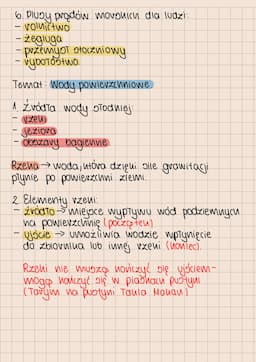 6. Plusy prądów morskich dla ludzi:
- rolnictwo
- żegluga
- przemysł stoczniowy
- rybołóstwo
Temat: Wody powierzchniowe
1. Źródła wody słodkiej:
- rzeki
- jeziora
- obszary bagienne
Rzeka → woda, która dzięki sile grawitacji
płynie po powierzchni ziemi.
2. Elementy rzeki:
- źródło → miejsce wypływu wód podziemnych
na powierzchnię (początek)
- ujście → umożliwia wodzie wpłynięcie
do zbiornika lub innej rzeki (koniec).
Rzeki nie muszą kończyć się ujściem-
mogą kończyć się w piaskach pustyni
(Tarym na pustyni Takla Makan)